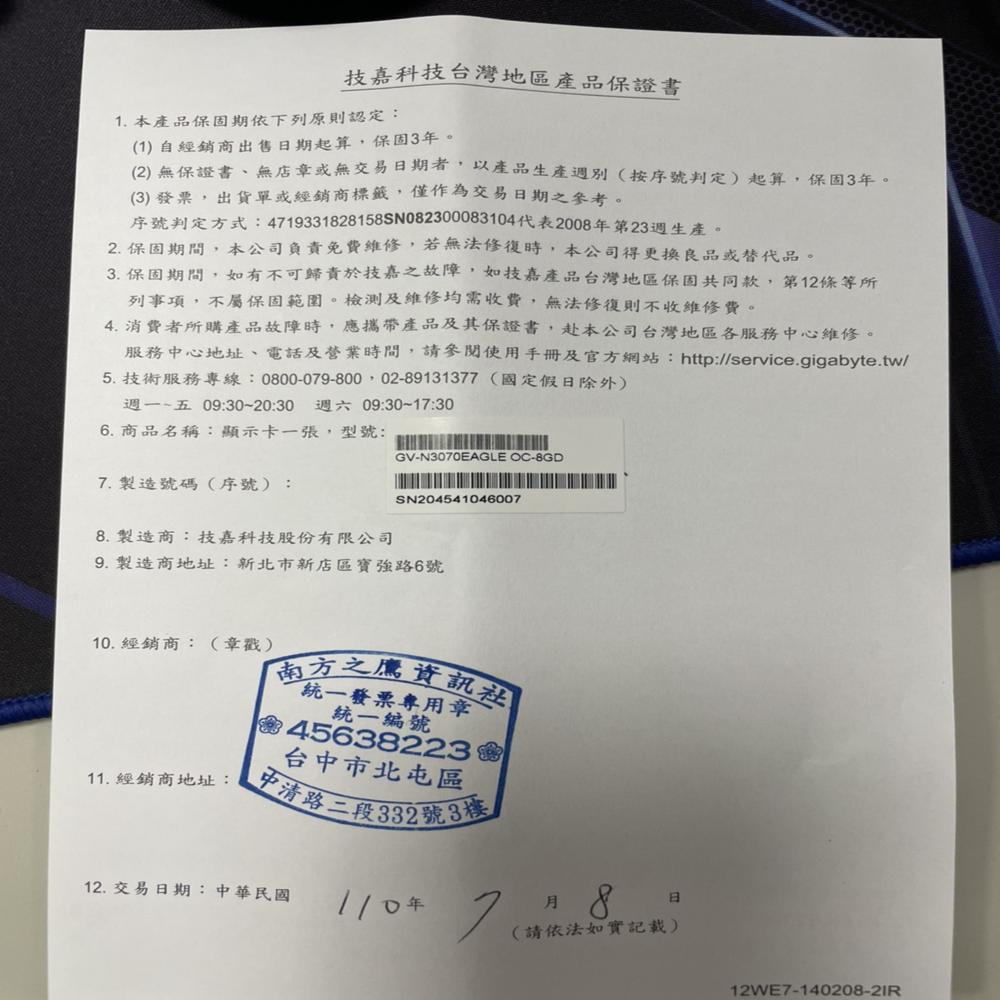 技嘉科技台灣地區產品保證書
1. 本產品保固期依下列原則認定：
(1) 自經銷商出售日期起算，保固3年。
(2) 無保證書、無店章或無交易日期者，以產品生產週別（按序號判定）起算，保固3年。
(3) 發票，出貨單或經銷商標籤，僅作為交易日期之參考。
序號判定方式：4719331828158SN082300083104代表2008年第23週生產。
2. 保固期間，本公司負責免費維修，若無法修復時，本公司得更換良品或替代品。
3. 保固期間，如有不可歸責於技嘉之故障，如技嘉產品台灣地區保固共同款，第12條等所
列事項，不屬保固範圍。檢測及維修均需收費，無法修復則不收維修費。
4. 消費者所購產品故障時，應攜帶產品及其保證書，赴本公司台灣地區各服務中心維修。
服務中心地址、電話及營業時間，請參閱使用手冊及官方網站：http://service.gigabyte.tw/
5. 技術服務專線：0800-079-800，02-89131377（國定假日除外）
週一~五 09:30~20:30 週六 09:30~17:30
6. 商品名稱：顯示卡一張，型號:
GV-N3070EAGLE OC-8GD
7. 製造號碼（序號）：
SN204541046007
8. 製造商：技嘉科技股份有限公司
9. 製造商地址：新北市新店區寶強路6號
10. 經銷商：（章戳）
南方之鷹資訊社
統一發票專用章
統一編號
45638223
台中市北屯區
中清路二段332號3樓
11. 經銷商地址：
12. 交易日期：中華民國 110年 7月 8日
（請依法如實記載）
12WE7-140208-2IR